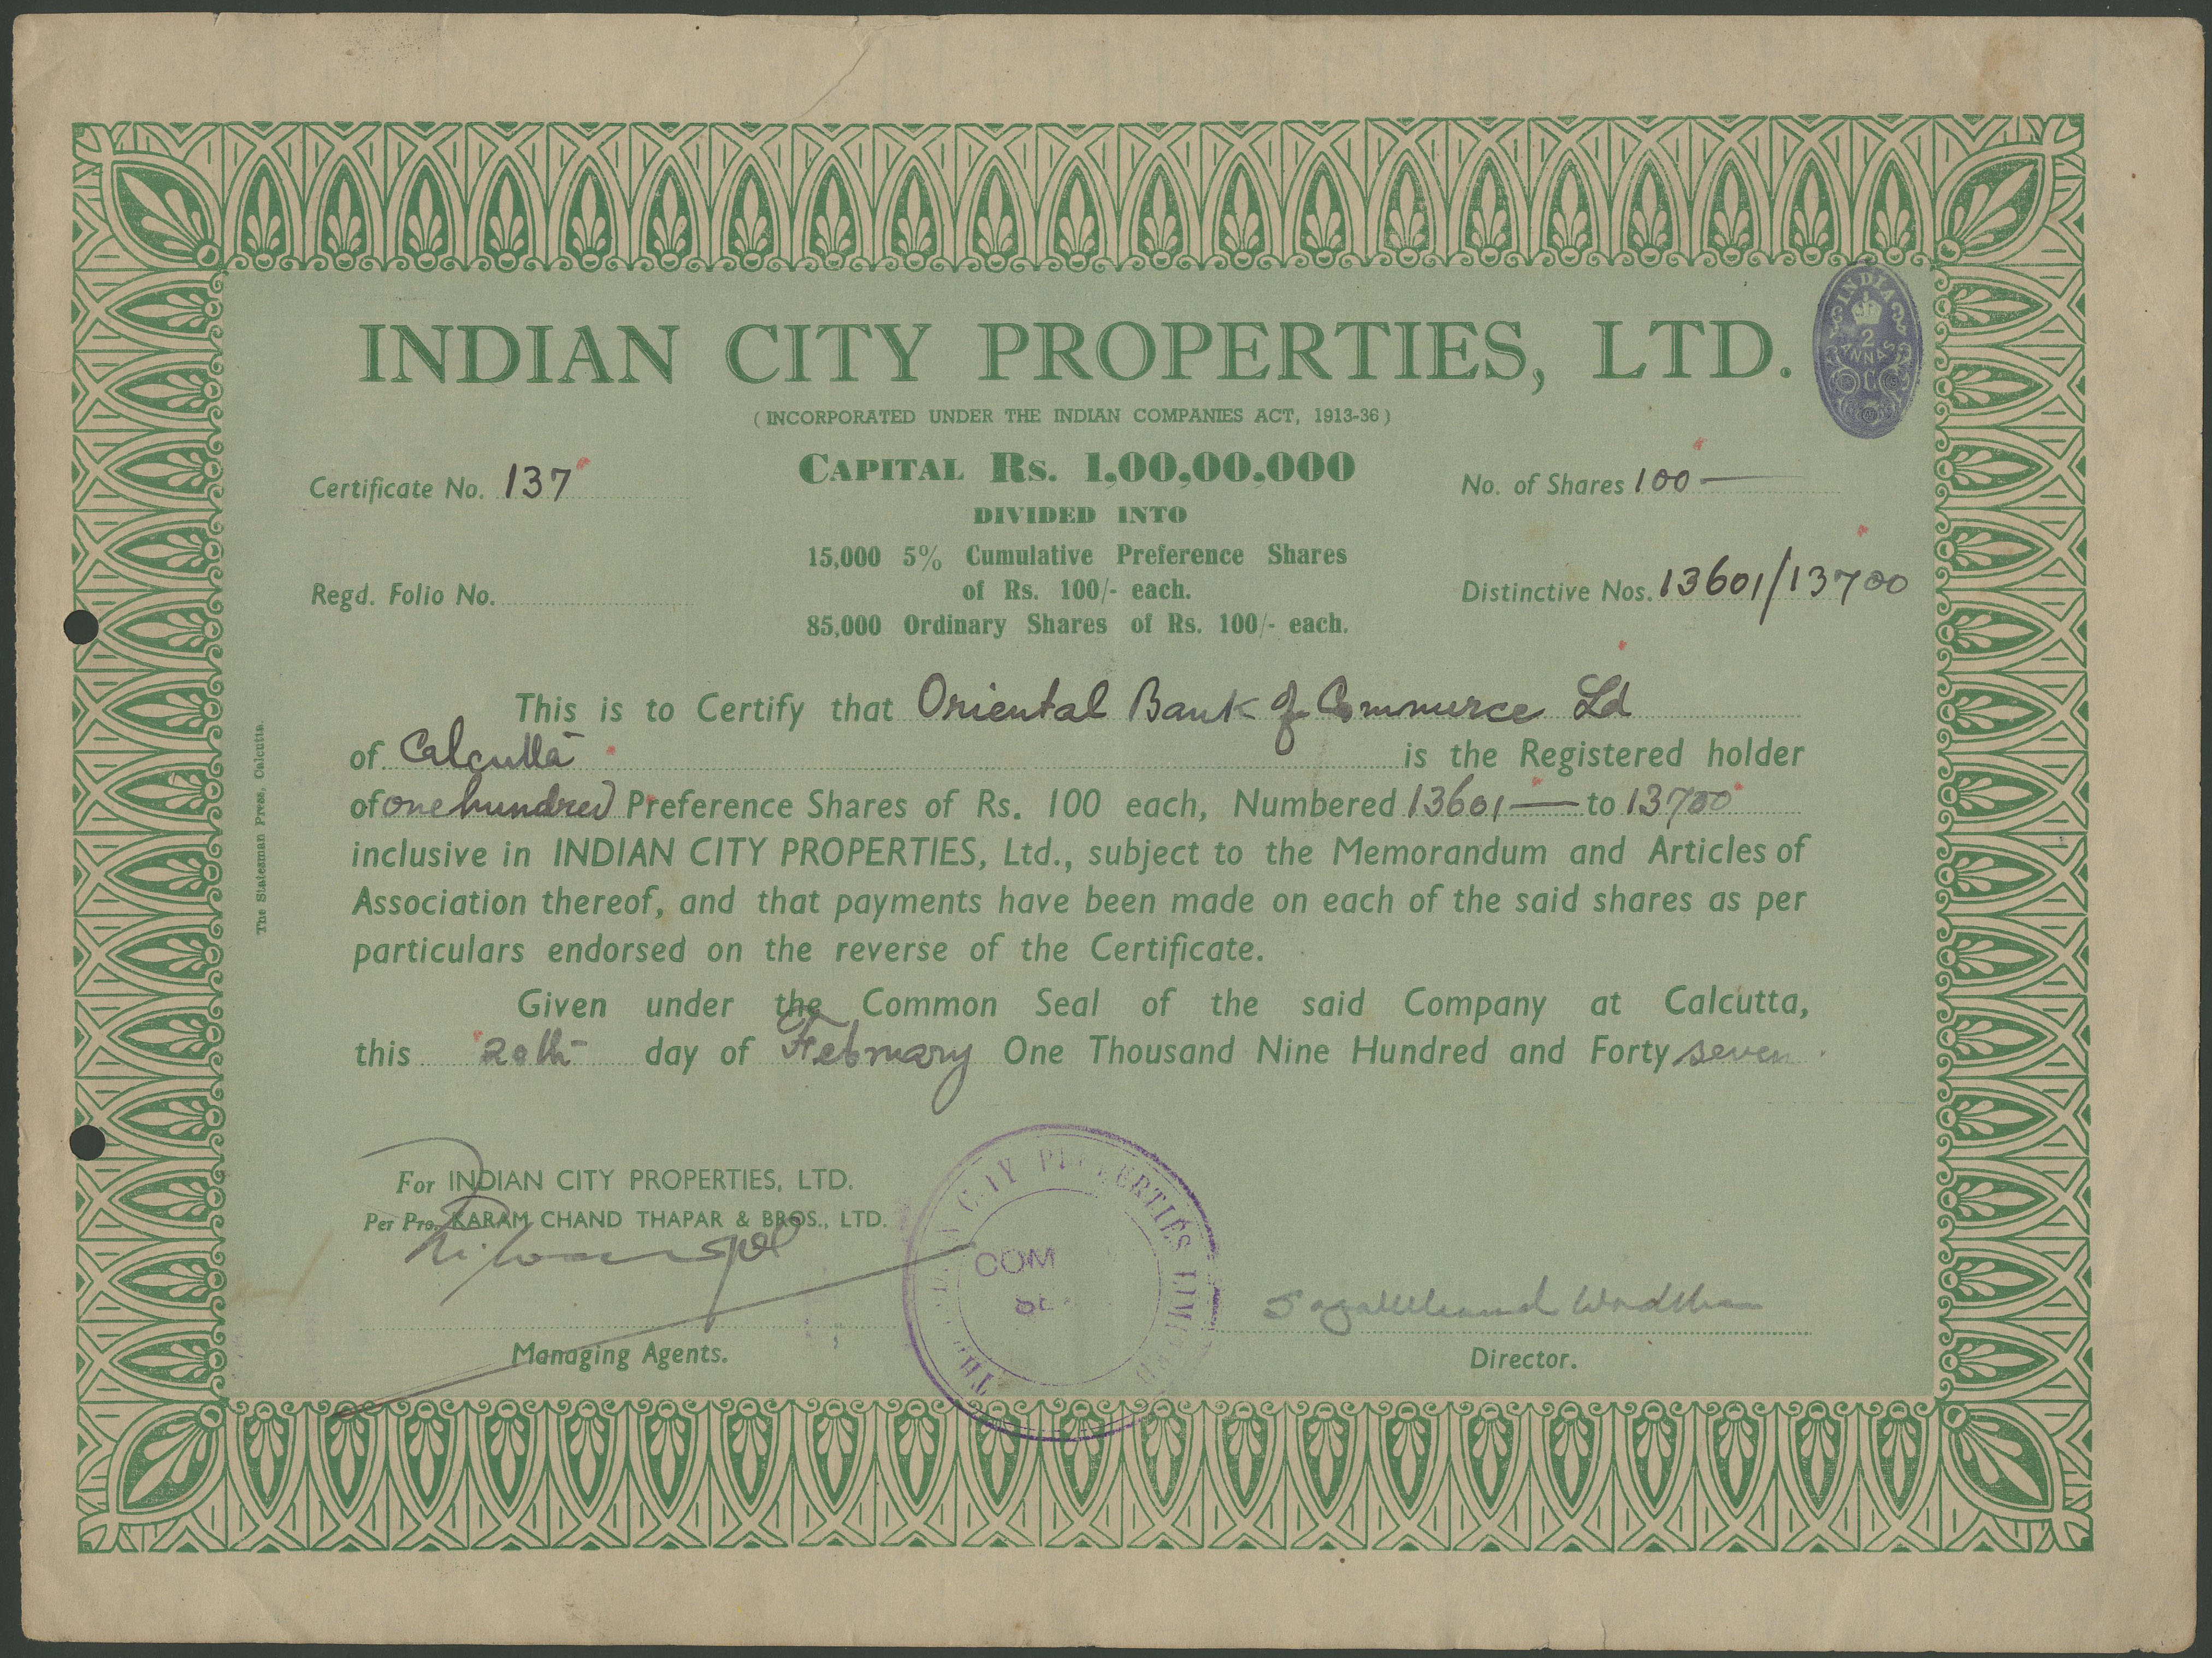 INDIAN CITY PROPERTIES, LTD.
INDIA
2
ANNAS
(INCORPORATED UNDER THE INDIAN COMPANIES ACT, 1913-36)
Certificate No. 137
CAPITAL Rs. 1,00,00,000
No. of Shares 100—
DIVIDED INTO
15,000 5% Cumulative Preference Shares
of Rs. 100/- each.
Regd. Folio No.
Distinctive Nos. 13601/13700
85,000 Ordinary Shares of Rs. 100/- each.
This is to Certify that Oriental Bank of Commerce Ld
of Calcutta is the Registered holder
of one hundred Preference Shares of Rs. 100 each, Numbered 13601— to 13700
inclusive in INDIAN CITY PROPERTIES, Ltd., subject to the Memorandum and Articles of
Association thereof, and that payments have been made on each of the said shares as per
particulars endorsed on the reverse of the Certificate.
Given under the Common Seal of the said Company at Calcutta,
this 20th day of February One Thousand Nine Hundred and Forty seven.
The Statesman Press, Calcutta.
For INDIAN CITY PROPERTIES, LTD.
Per Pro. KARAM CHAND THAPAR & BROS., LTD.
CITY PROPERTIES LIMITED
COM
SE
Managing Agents.
Director.